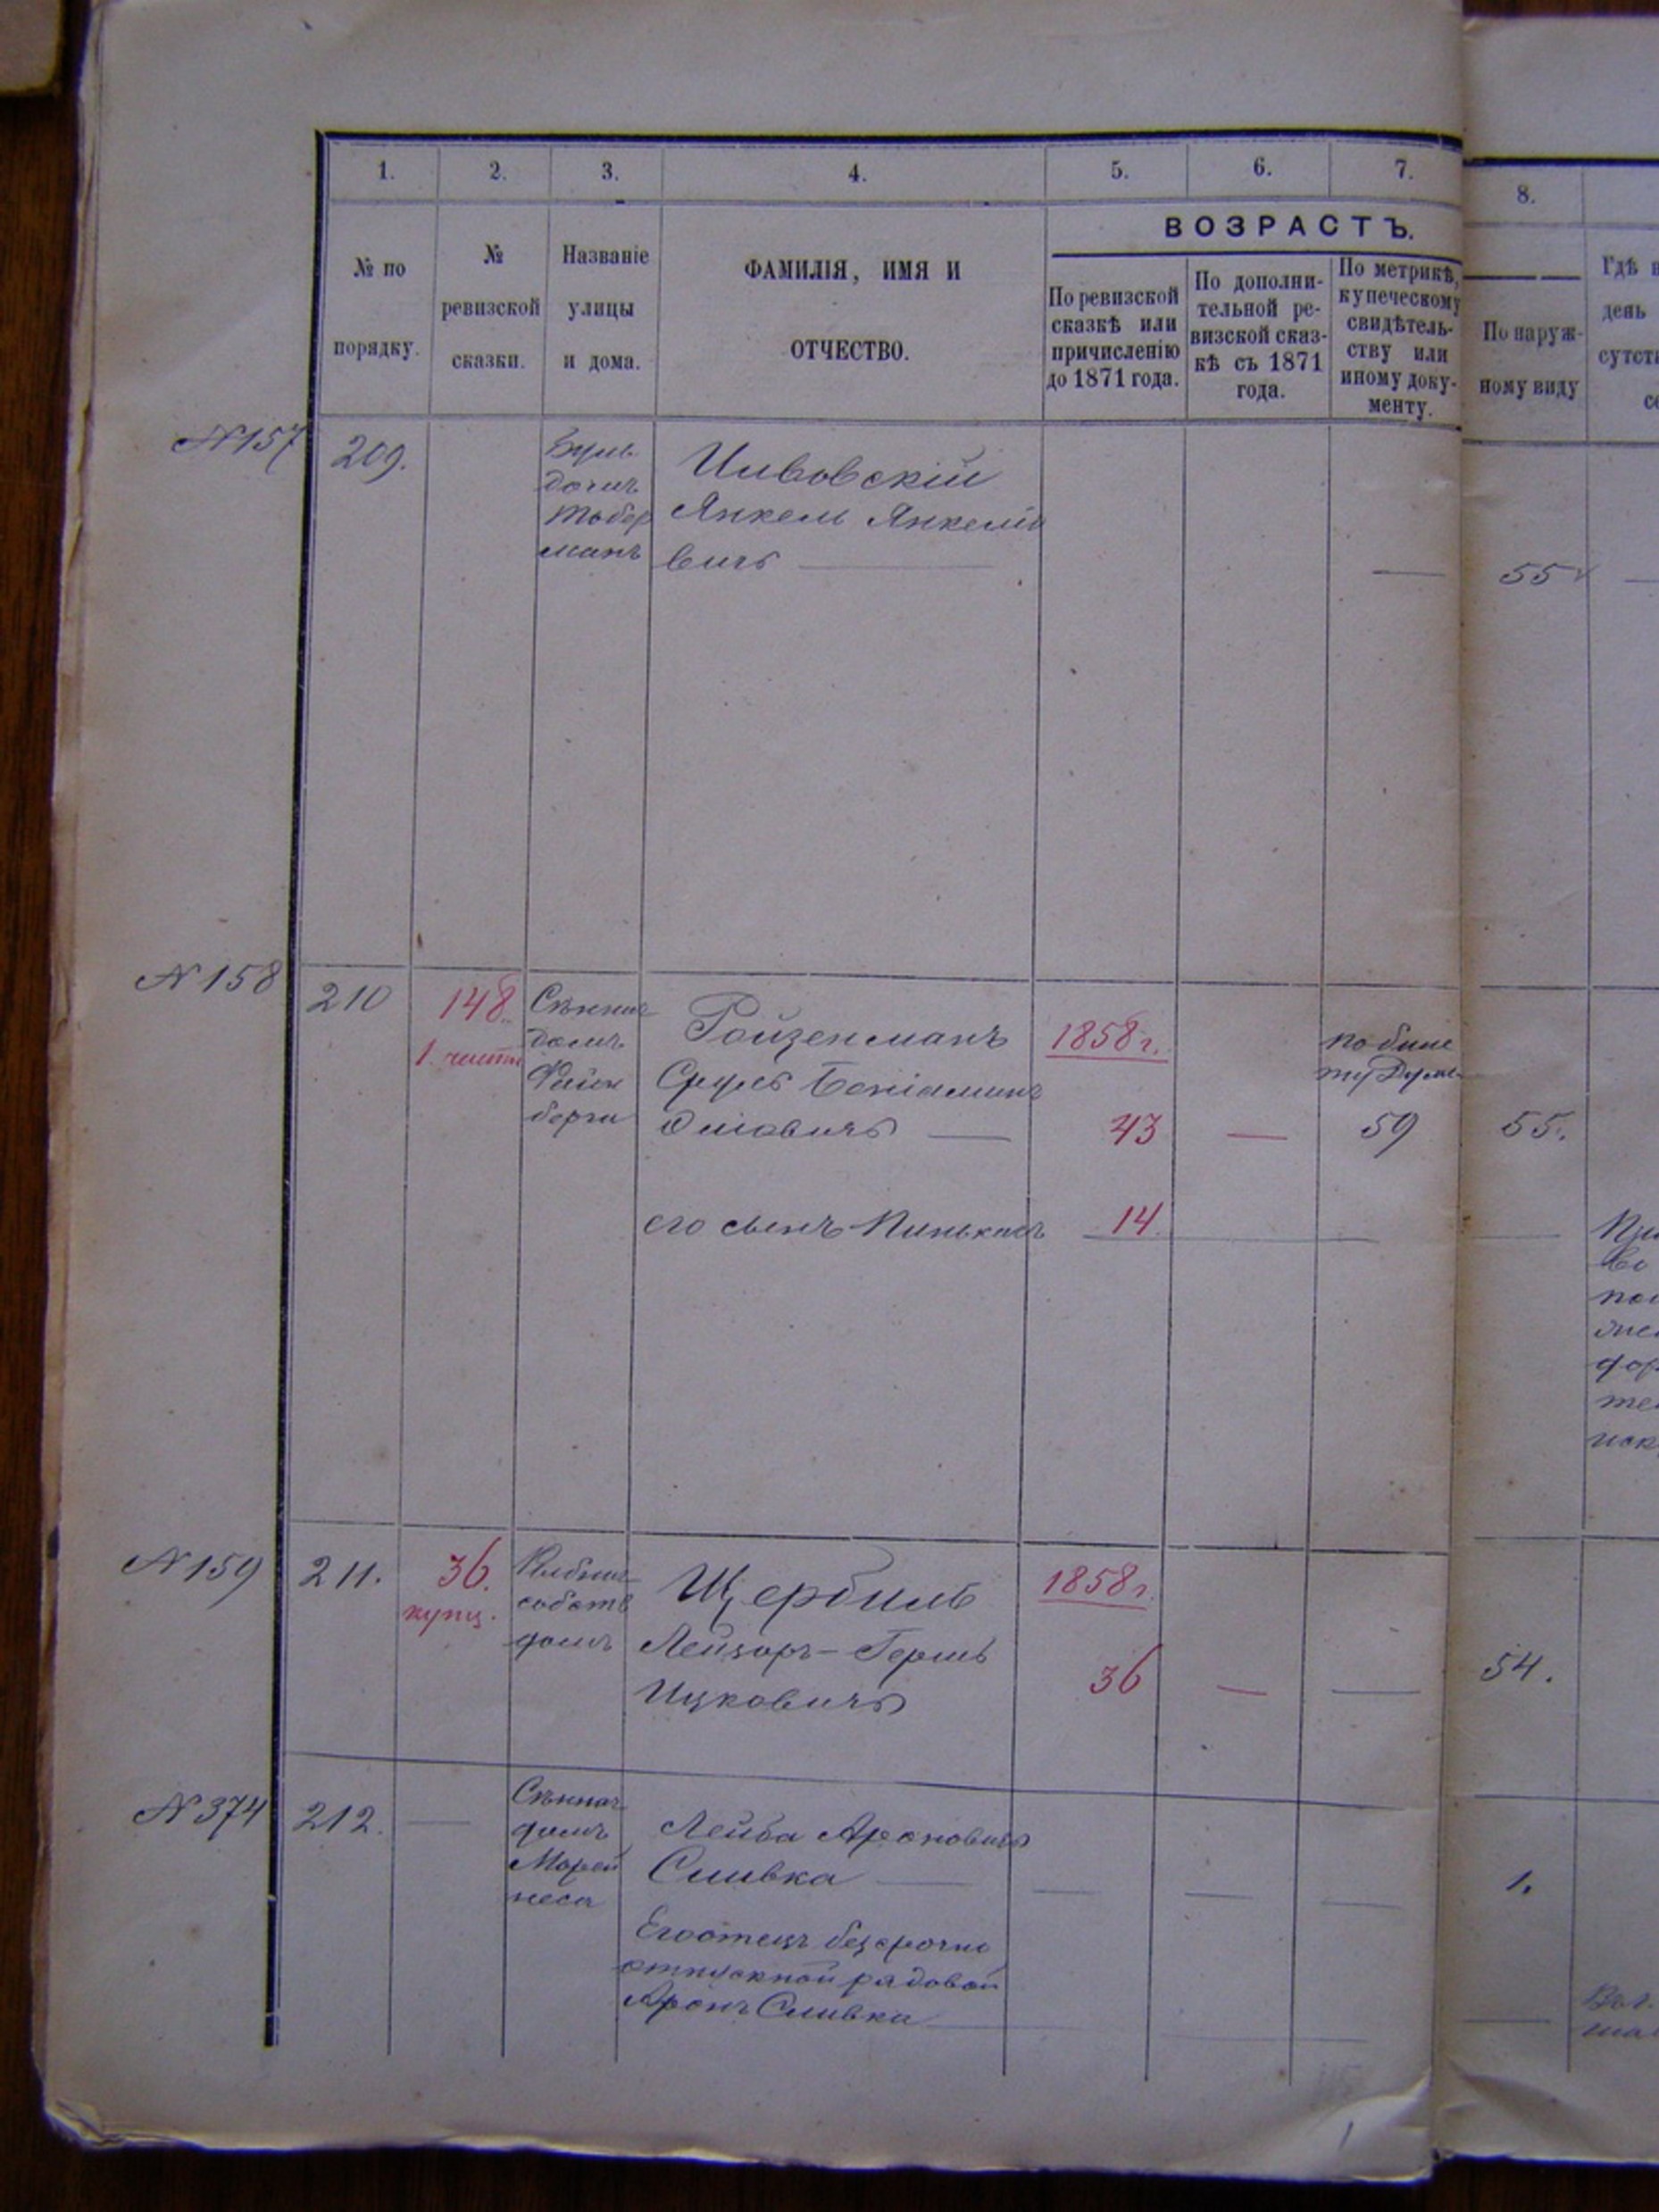 1. 2. 3. 4. 5. 6. 7. 8.
№ по
порядку.
№
ревизской
сказки.
Названіе
улицы
и дома.
ФАМИЛІЯ, ИМЯ И
ОТЧЕСТВО.
ВОЗРАСТЪ.
По ревизской
сказкѣ или
причисленію
до 1871 года.
По дополни-
тельной ре-
визской сказ-
кѣ съ 1871
года.
По метрикѣ,
купеческому
свидѣтель-
ству или
иному доку-
менту.
По наруж-
ному виду
Гдѣ
день
N 157
209.
домъ
Янкель
вичъ
55
N 158
210
148.
1. части
домъ
Ройзенманъ
Сруль Беніамин
овичъ
1858 г.
43
59
55.
его сынъ Пинькасъ
14
N 159
211.
36.
купц.
собств
домъ
Щербиль
Лейзоръ-Гершъ
Ицковичъ
1858 г.
36
54.
N 374
212.
домъ
Лейба Ароновичъ
Сливка
1.
Его отецъ безсрочно
отпускной рядовой
Аронъ Сливка